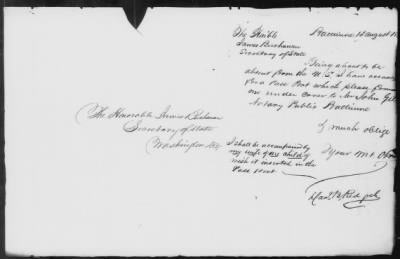 The Honble
James Buchanan
Secretary of State
Baltimore 14 August
Being about to be
absent from the U.S. I have
for a Pass Port which please
me under cover to Mr John
Notary Public Baltimore
& much oblige
Your Mt. Obt
I shall be accompanied by
my wife & my child &
wish it inserted in the
Pass Port
The Honorable James Buchanan
Secretary of State
Washington City